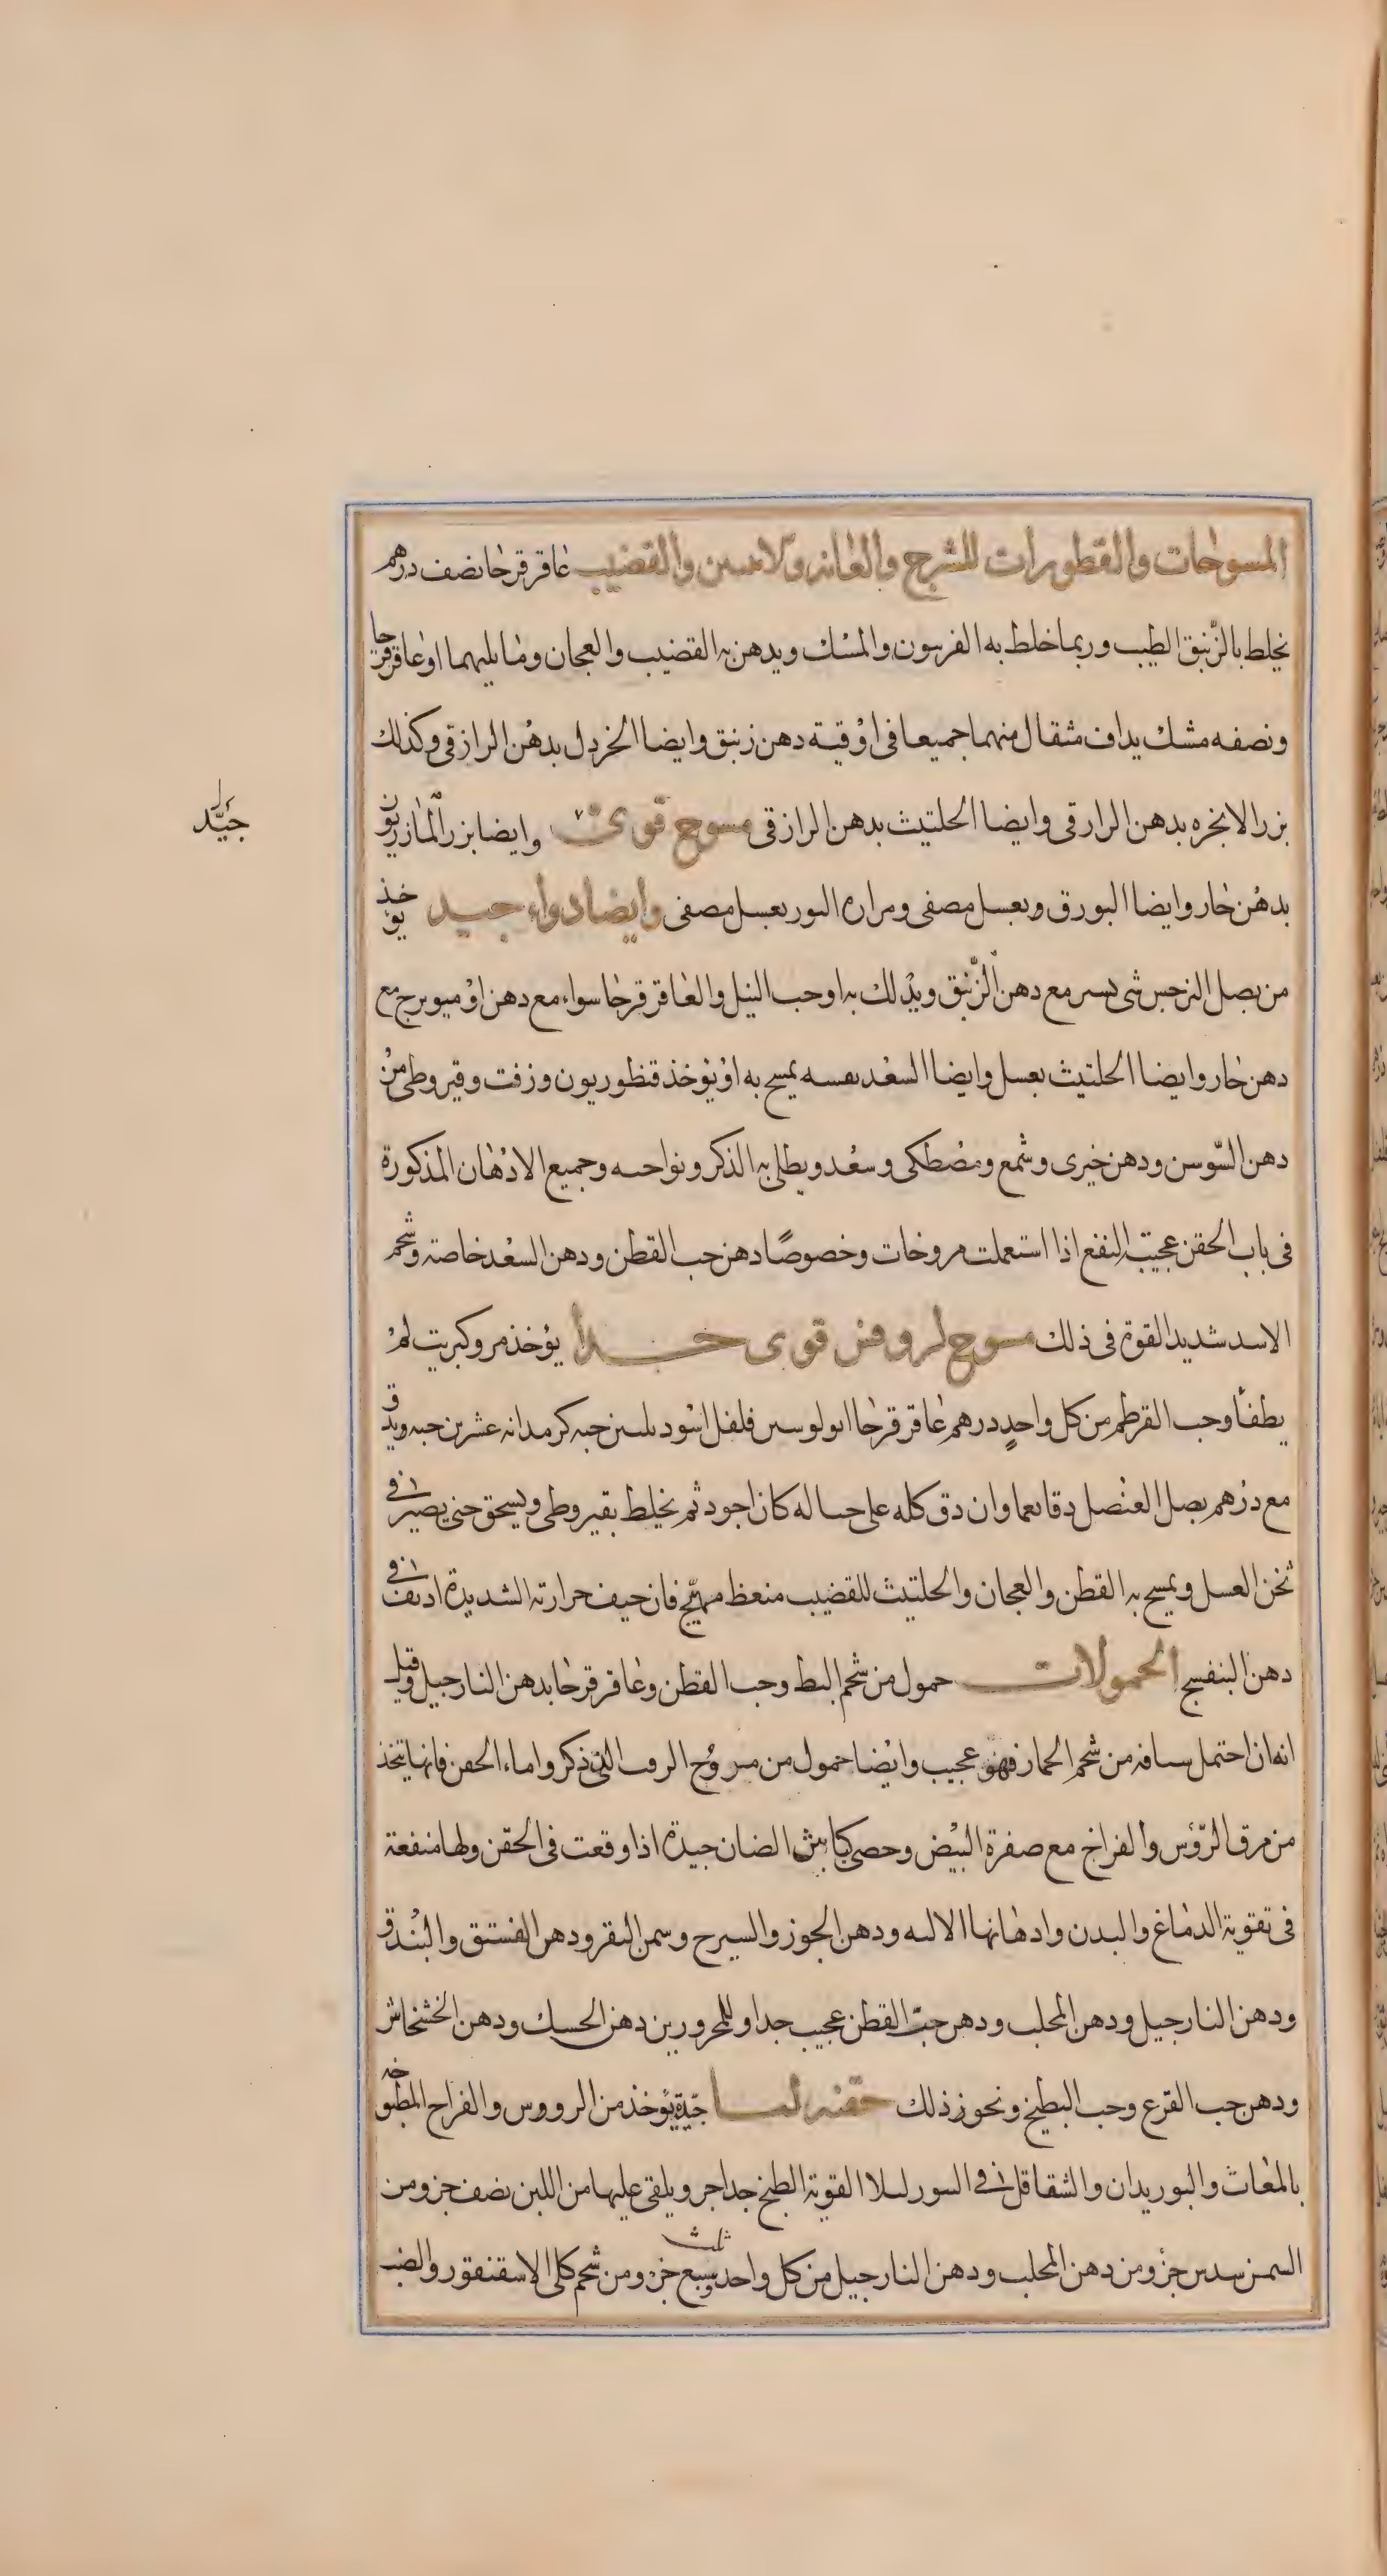 المسوحات والقطورات للشرج والعانه والانثيين والقضيب عاقرقرحا نصف درهم
يخلط بالزّنبق الطيب وربما خلط به الفربيون والمسك ويدهن به القضيب والعجان وما يليهما او عاقرقرحا
ونصفه مسك يداف مثقال منهما جميعا فى اوقية دهن زنبق وايضا الخردل بدهن الرازقى وكذلك
بزر الانجره بدهن الرازقى وايضا الحلتيث بدهن الرازقى مسوح قوى وايضا بزر المازريون
جيّد
بدهن حار وايضا البورق وبعسل مصفى ومراره الثور بعسل مصفى وايضا دواء جيد يوخذ
من بصل النرجس شى يسير مع دهن الزّنبق ويدلك به او حب النيل والعاقرقرحا سواء مع دهن او ميويزج مع
دهن حار وايضا الحلتيث بعسل وايضا السعد نفسه يمسح به او يؤخذ قنطوريون وزفت وقيروطى من
دهن السّوسن ودهن خيرى وشمع ومصطكى وسعد ويطلى به الذكر ونواحيه وجميع الادهان المذكورة
فى باب الحقن عجيبة النفع اذا استعملت مروخات وخصوصًا دهن حب القطن ودهن السعد خاصة وشحم
الاسد شديد القوة فى ذلك مسوح لروفس قوى جدا يؤخذ مر وكبريت لم
يطفأ وحب القرطم من كل واحدٍ درهم عاقرقرحا ابولوسين فلفل اسود ثلثين حبه كرمدانه عشرين حبه ويدق
مع درهم بصل العنصل دقا نعما وان دق كله على حياله كان اجود ثم يخلط بقيروطى ويسحق حتى يصير فى
ثخن العسل ويمسح به القطن والعجان والحلتيث للقضيب منعظ مهيّج فان خيف حرارته الشديدة اديف فى
دهن البنفسج الحمولات حمول من شحم البط وحب القطن وعاقرقرحا بدهن النارجيل وقيل
انه ان احتمل شيافه من شحم الحمار فهو عجيب وايضا حمول من مسوح الزفت الذى ذكر واما الحقن فانها يتخذ
من مرق الرّؤس والفراخ مع صفرة البيض وحصى كباش الضان جيدة اذا وقعت فى الحقن ولها منفعة
فى تقوية الدماغ والبدن وادهانها الاليه ودهن الجوز والسيرج وسمن البقر ودهن الفستق والبندق
ودهن النارجيل ودهن المحلب ودهن حبّ القطن عجيب جدا وللمحرورين دهن الحسك ودهن الخشخاش
ودهن حب القرع وحب البطيخ ونحو ذلك حقنه لنا جيّدة يؤخذ من الرووس والفراخ المطبوخه
بالمغاث والبوزيدان والشقاقل فى التنور ليلا القوية الطبخ جدا جزو يلقى عليها من اللبن نصف جزو من
السمن سدس جزؤ ومن دهن المحلب ودهن النارجيل من كل واحد ثلث وسبع جزء ومن شحم كلى الاسقنقور والضب